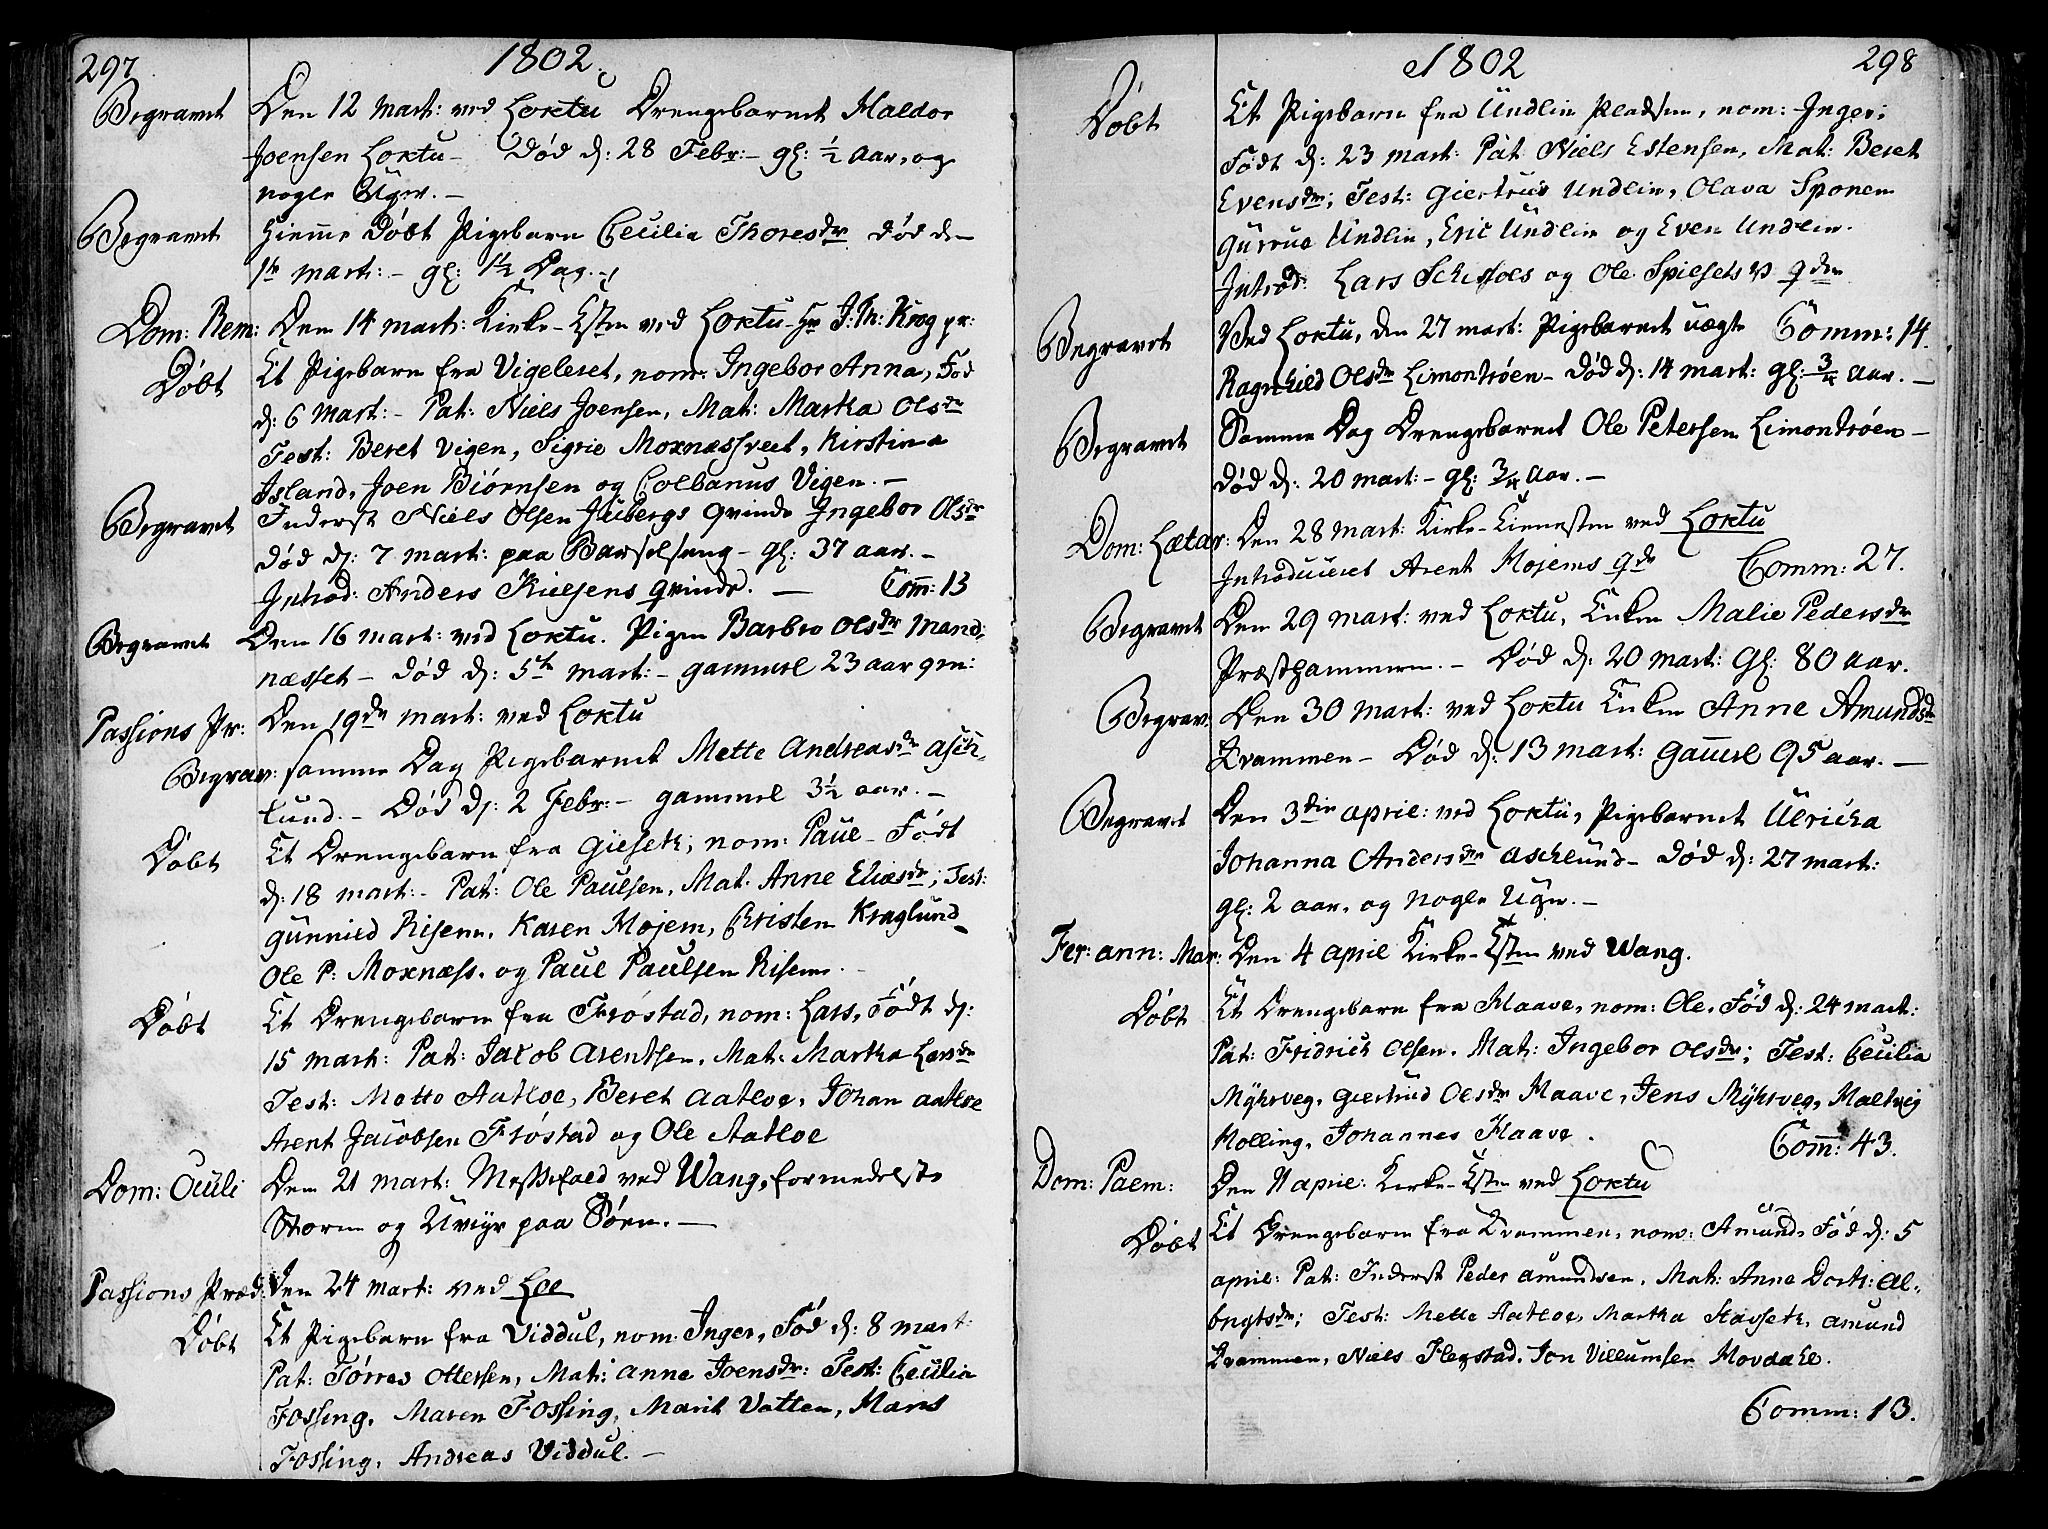 297
1802.
Begravet Den 12 Mart: ved Loktu Drengebarnet Haldor
Joensen Loktu - Død d: 28 Febr: - gl: ½ Aar, og
nogle Uger. -
Begravet Hiemme Døbt Pigebarn Cecilia Thoresdr død den
1te Mart: - gl: 1½ Dag. -
Dom: Rem: Den 14 Mart: Kirke-Tiesten ved Loktu - Hr J: Th: Krog pr:
Døbt Et Pigebarn fra Vigeleret, nom: Ingebor Anna, Fød
d: 6 Mart: - Pat: Niels Joensen, Mat: Martha Olsdr
Test: Beret Vigen, Sigrie Moxnæssveet, Kirstina
Island, Joen Biørnsen og Colbanus Vigen. -
Begravet Inderst Niels Olsen Jubergs Qvinde Ingebor Olsdr
død d: 7 Mart: paa Barselseng - gl: 37 aar. -
Introd: Anders Kielsens qvinde. - Com̅: 13
Begravet Den 16 Mart: ved Loktu. Pigen Barbro Olsdr Mand:
næsset - død d: 5te Mart: - gammel 23 aar
Passions Pr: Den 19de Mart: ved Loktu
Begrav: samme Dag Pigebarnet Mette Andreasdr Asch-
lund. - Død d: 2 Febr: - gammel 3½ aar. -
Døbt Et Drengebarn fra Gieseth, nom: Paul - Født
d: 18 Mart: - Pat: Ole Paulsen, Mat. Anne Eliasdr; Test:
Gunnild Risem, Karen Mojem, Cristen Kraglund
Ole P: Moxnæss, og Paul Paulsen Risem.
Døbt Et Drengebarn fra Frøstad, nom: Lars, Født d:
15 Mart: Pat: Jacob Arentsen, Mat: Martha Larsdr
Test: Mette Aatloe, Beret Aatloe, Johan Aatloe
Arent Jacobsen Frøstad og Ole Aatloe
Dom: Oculi Den 21 Mart: Messefald ved Wang, formedelst
Storm og Uveyr paa Søen. -
Passions Præd: Den 24 Mart: ved Loe
Døbt Et Pigebarn fra Viddul, nom: Inger, Fød d: 8 Mart:
Pat: Tørres Ottersen, Mat: Anne Joensdr: Test: Cecilia
Fossing, Maren Fossing, Marit Vatten, Hans
Fossing, Andreas Viddul. -
1802
298
Døbt Et Pigebarn fra Undlin Pladsen, nom: Inger;
Født d: 23 Mart: Pat: Niels Estensen, Mat: Beret
Evensdr; Test: Giertrud Undlin, Olava Sponem
Gurrue Undlin, Eric Undlin og Even Undlin.
Introd: Lars Schissels og Ole Spilsets qder
Begravet Ved Loktu, den 27 Mart: Pigebarnet uægte Comm: 14.
Ragnhild Olsdr Simontrøen - Død d: 14 Mart: gl: ¾ aar. -
Begravet Samme Dag Drengebarnet Ole Petersen Simontrøen -
død d: 20 Mart: - gl: ¾ Aar. -
Dom: Lætar: Den 28 Mart: Kirke-Tienesten ved Loktu
Introduceret Arent Mojems qde Comm: 27.
Begravet Den 29 Mart: ved Loktu, Enken Malie Pedersdr
Præsthammern. - Død d: 20 Mart: Gl: 80 aar.
Begrav: Den 30 Mart: ved Loktu Enken Anne Amundsdr
Kvammen - Død d: 13 Mart: gam̅el 95 aar. -
Begravet Den 3die April: ved Loktu, Pigebarnet Ulricha
Johanna Andersdr Aschlund - død d: 27 Mart:
gl: 2 aar, og nogle Uger. -
Fer: ann: Mar: Den 4 April Kirke-Tiesten ved Wang.
Døbt Et Drengebarn fra Haave, nom: Ole, Fød d: 24 Mart:
Pat: Fridrich Olsen, Mat: Ingebor Olsdr; Test: Cecilia
Myhrveg, Giertrud Olsdr Haave, Jens Myhrveg, Hallvig
Holling, Johannes Haave. Com̅: 43.
Dom: Palm: Den 11 April: Kirke-Tiesten ved Loktu
Døbt Et Drengebarn fra Kvammen, nom: Amund, Fød d: 5
April: Pat: Inderst Peder Amundsen, Mat: Anne Dorth: Al-
brigtsdr; Test: Mette Aatloe, Martha Hasseth, Amund
Kvammen, Niels Flegstad, Jon Villumsen Hovdahl.
Comm: 13.